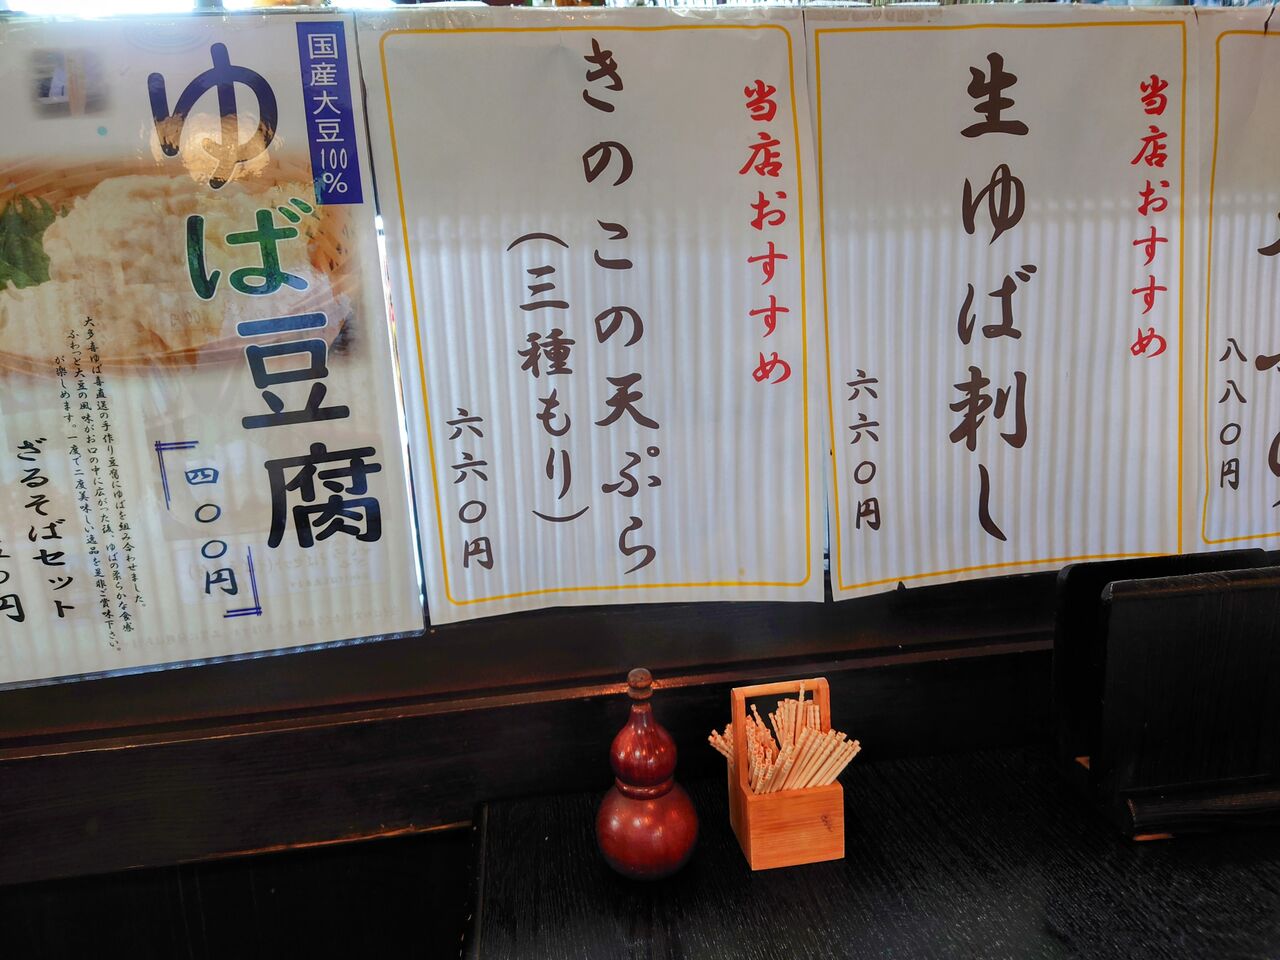 国産大豆100%
ゆば豆腐
「四〇〇円」
大多喜ゆば喜直送の手作り豆腐にゆばを組み合わせました。
ふわっと大豆の風味がお口の中に広がった後、ゆばの柔らかな食感
が楽しめます。一度で二度美味しい逸品を是非ご賞味下さい。
ざるそばセット
当店おすすめ
きのこの天ぷら
（三種もり）
六六〇円
当店おすすめ
生ゆば刺し
六六〇円
八八〇円